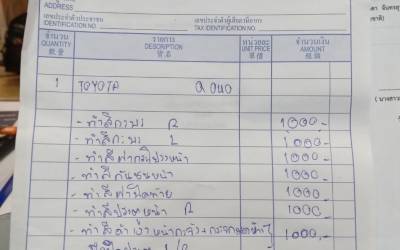 ที่อยู่
ADDRESS
เลขประจำตัวประชาชน
IDENTIFICATION NO.
เลขประจำตัวผู้เสียภาษีอากร
TAX IDENTIFICATION NO.
จำนวน รายการ หน่วยละ จำนวนเงิน
QUANTITY DESCRIPTION UNIT PRICE AMOUNT
數量 貨名 單價 銀額
1 TOYOTA
- ทำสีกะบะ R 1000.-
- ทำสีกะบะ L 1000.-
- ทำสีฝากระโปรงหน้า 1000
- ทำสีกันชนหน้า 1000
- ทำสีฝาปิดท้าย 1000
- ทำสีประตูหน้า R 1000
- ทำสีดำ 1000.-